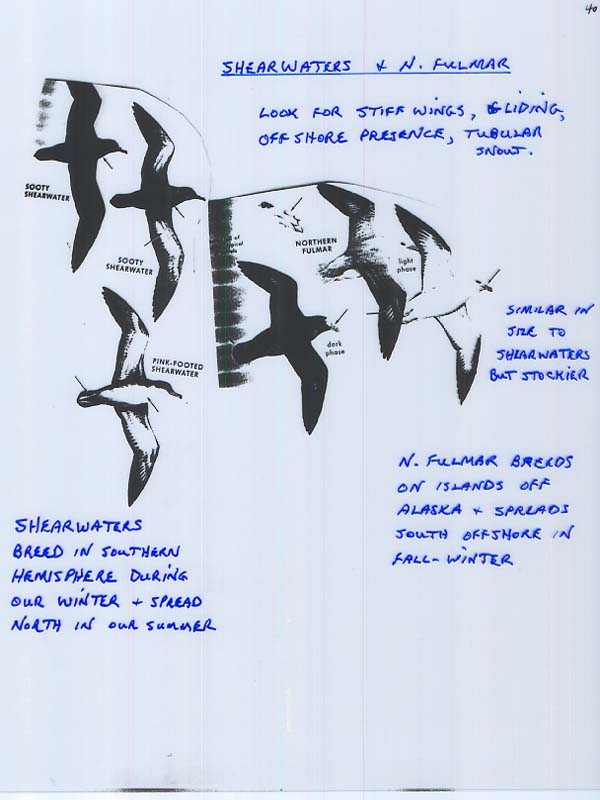 40
SHEARWATERS & N. FULMAR
LOOK FOR STIFF WINGS, GLIDING,
OFFSHORE PRESENCE, TUBULAR
SNOUT.
SOOTY
SHEARWATER
SOOTY
SHEARWATER
NORTHERN
FULMAR
light
phase
dark
phase
PINK-FOOTED
SHEARWATER
SIMILAR IN
SIZE TO
SHEARWATERS
BUT STOCKIER
N. FULMAR BREEDS
ON ISLANDS OFF
ALASKA & SPREADS
SOUTH OFFSHORE IN
FALL-WINTER
SHEARWATERS
BREED IN SOUTHERN
HEMISPHERE DURING
OUR WINTER & SPREAD
NORTH IN OUR SUMMER